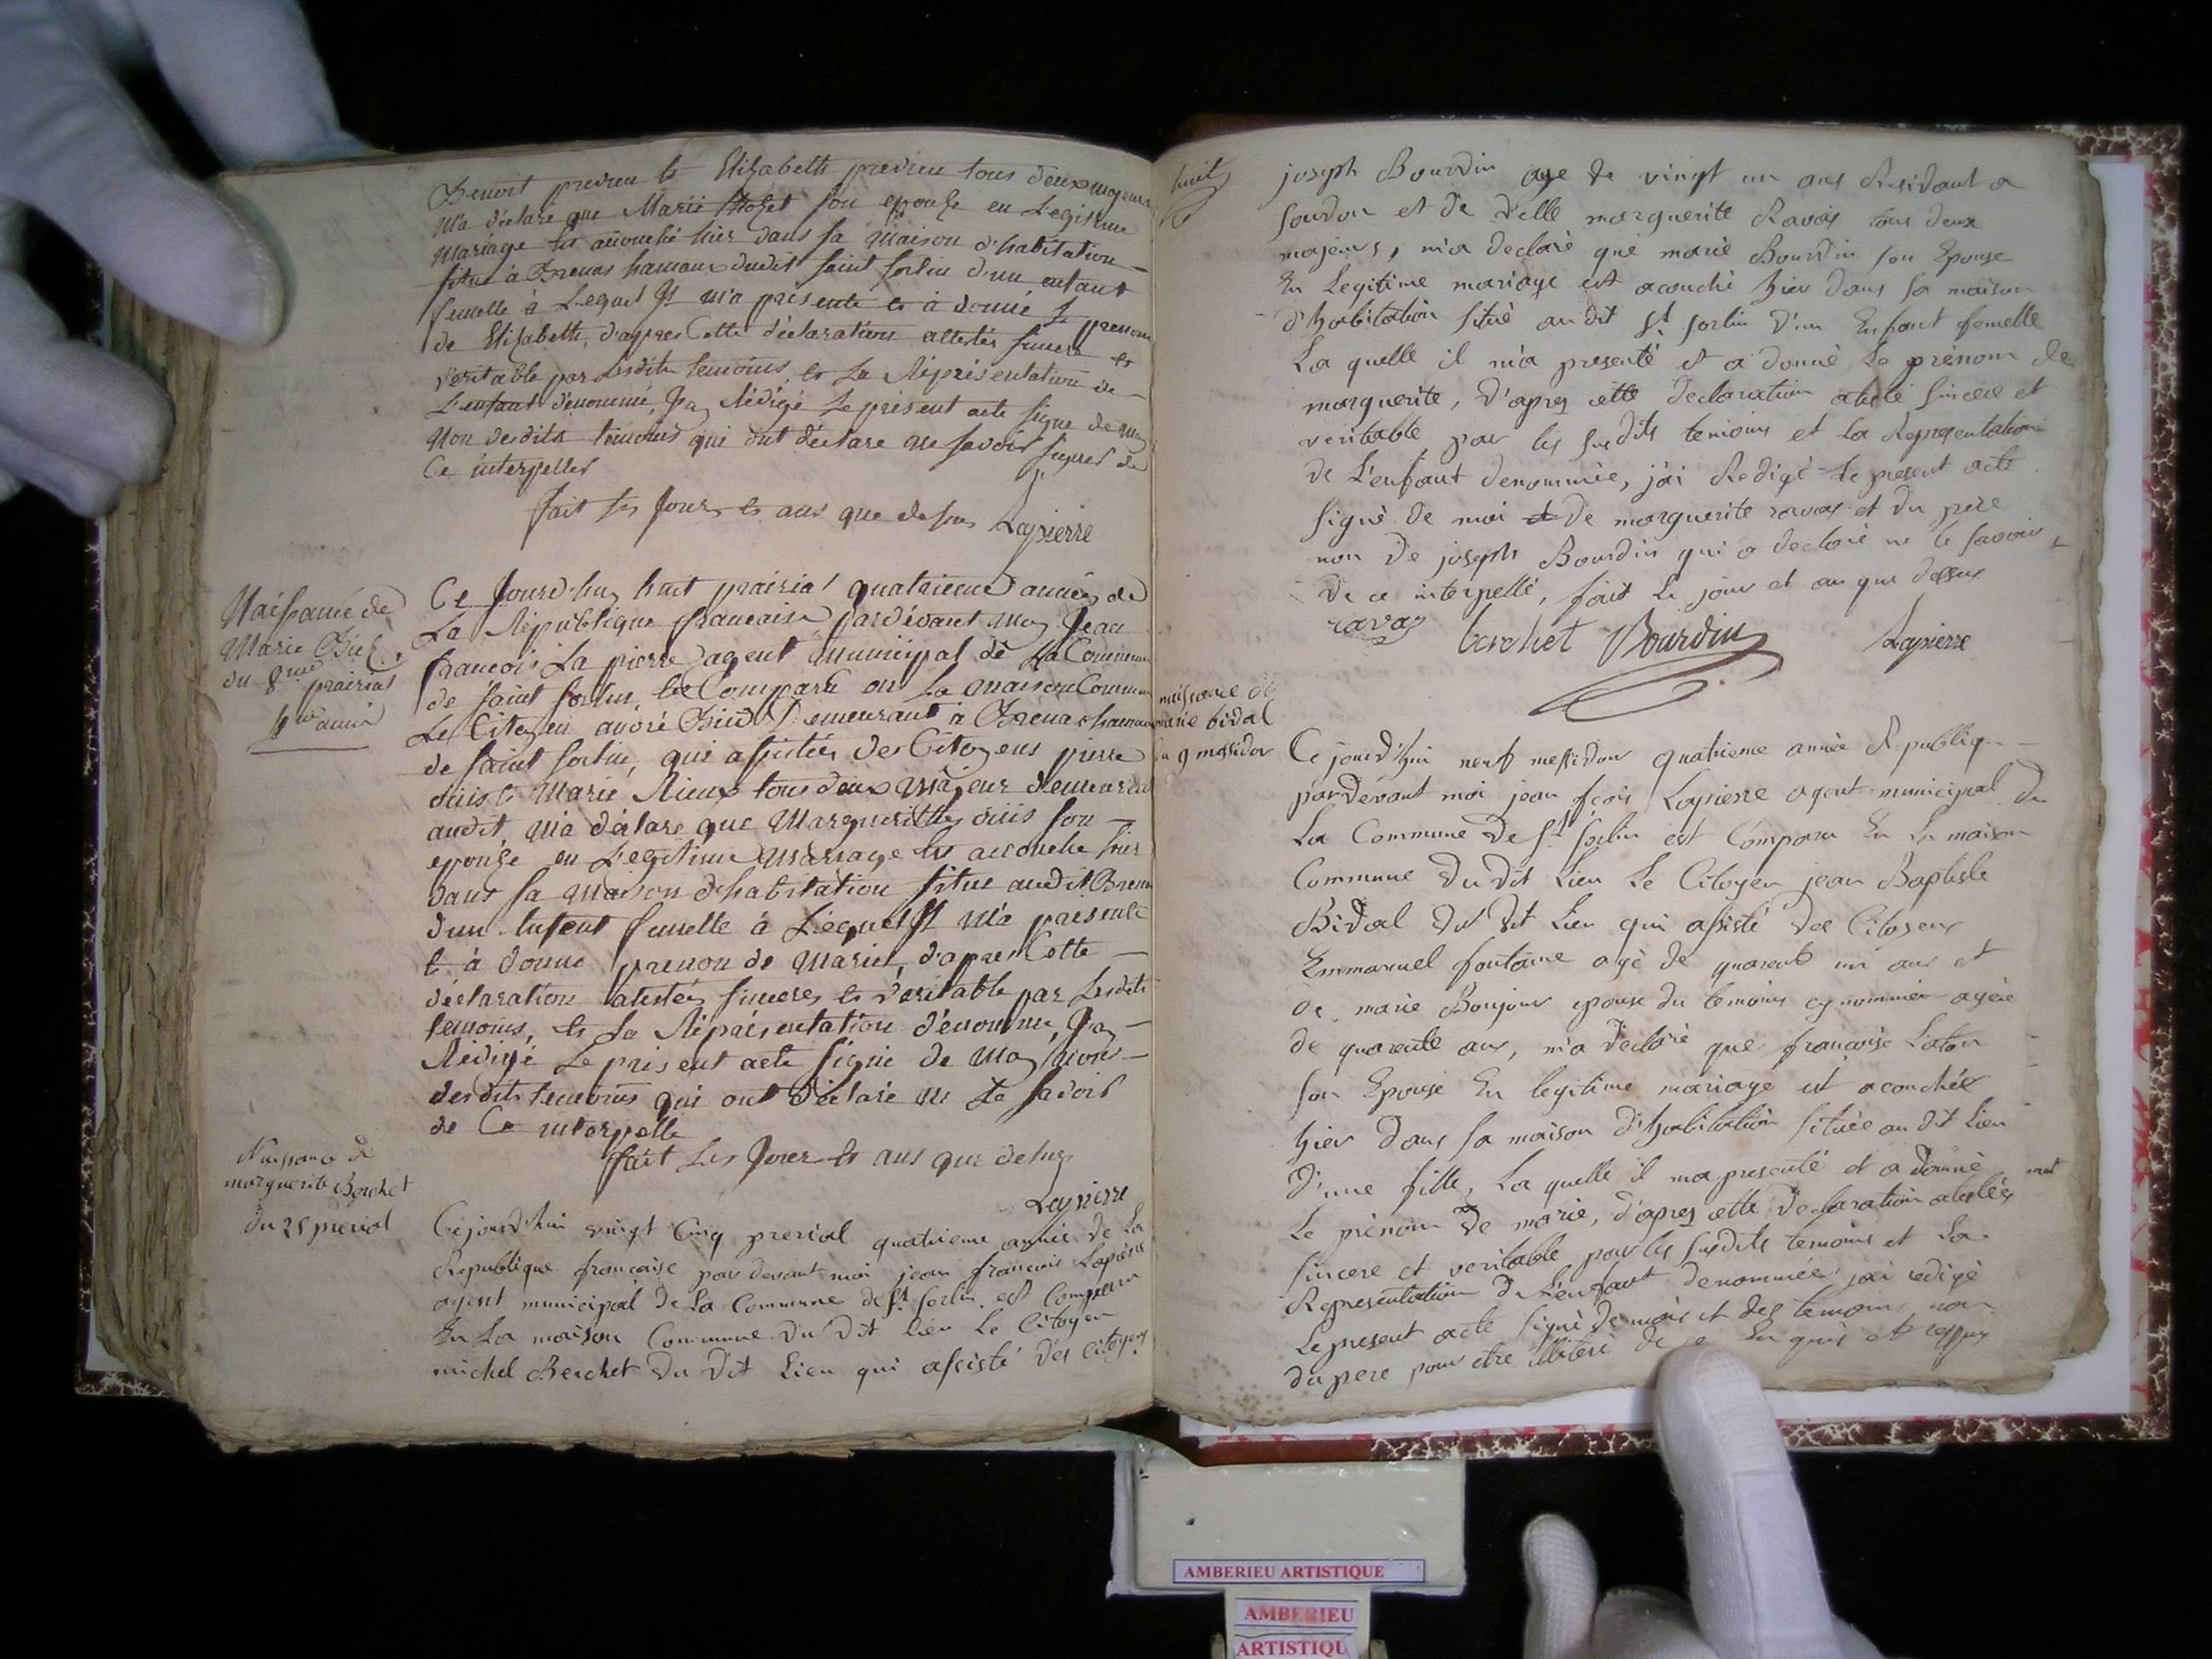 Benoit predieu et Elizabeth predieu tous deux majeurs
m'a déclaré que Marie son epouse en Legitime
Mariage est accouché hier dans sa Maison d'habitation
situe à Brenas hamaux dudit saint sorlin d'un enfant
femelle à Lequel Il m'a présenté et à donné Le prenom
de Elizabeth, d'apres Cette déclaration attestés sincere et
véritable par Lesdits temoins, et La Représentation de
L'enfant dénommé, Jay Rédigé Le présent acte signe de moy
Non desdits temoins qui ont déclare ne savoir signer de
Ce interpeller
fait Les Jours et ans que desus Lapierre
Naissance de
Marie
du 8me prairial
4me année
Ce Jourd'huy huit prairial quatrieme années de
La République francaise pardévant moy Jean
francois La pierre agent municipal de La Commune
de saint sorlin, est Comparu en La maison Commune
Le Citoyen andré Demeurant à Brenas hamaux
de saint sorlin, qui assistés des Citoyens pierre
et Marie Rieux tous deux Majeur demeurant
audit, m'a déclare que Margueritte son
epouse en Legitime Mariage est accouche hier
dans sa Maison d'habitation situe audit Brenas
d'un Enfent femelle à Lequel Il m'a présenté
et à donné prenon de Marie, d'apres Cette
déclaration atestés sinceres et véritable par Lesdits
temoins, et La Réprésentation dénommé, Jay
Rédigé Le present acte signé de Moy Non
desdits temoins qui ont Déclaré ne Le savoir
de Ce interpelle
fait Les Jour et ans que desus
Lapierre
Naissance de
marguerite Berchet
du 25 prerial
Cejourd'hui vingt Cinq prerial quatrieme année de La
Republique francaise par devant moi jean francois Lapierre
agent municipal de La Commune de St sorlin est Comparu
En La maison Commune du Dit lieu Le Citoyen
michel Berchet Du Dit Lieu qui assisté des Citoyens
huit
joseph Bourdin age de vingt un ans Residant a
soudon et de D'elle marguerite Ravas tous deux
majeurs, m'a declaré que marie Bourdin son Epouse
En Legitime mariage est acouché hier dans sa maison
d'habitation situé au dit St sorlin d'un Enfant femelle
La quelle il m'a presenté et a donné Le prénom de
marguerite, d'apres cette declaration atesté sincere et
veritable par les susdits temoins et La Representation
de L'enfant denommée, j'ai Redigé Le present acte
signé de moi et de marguerite ravas et du pere
non de joseph Bourdin qui a declaré ne le savoir,
De ce interpellé, fait Le jour et an que dessus
ravas berchet Bourdin Lapierre
naissance de
marie bidal
du 9 messidor
Ce jourd'hui neuf messidor quatrieme année Republiq.
pardevant moi jean fçois Lapierre agent municipal de
La Commune de St sorlin est Comparu En La maison
Commune du Dit Lieu Le Citoyen jean Baptiste
Bidal du dit Lieu qui assisté des Citoyens
Emmanuel fontaine agé de quarent un ans et
de marie Bonjour epouse du temoins cy nommée agée
de quarente ans, m'a declaré que francoise Laton
son Epouse En legitime mariage est acouchée
hier dans sa maison d'habitation située au dit Lieu
d'une fille, La quelle il m'a presenté et a Donné
Le prénom de marie, d'apres cette Declaration atestées
sincere et veritable par les susdits temoins et La
Representation de L'enfant denommée j'ai redigé
Le present acte signé de moi et des temoins non
du pere pour etre illiteré de ce En quis et
AMBERIEU ARTISTIQUE
AMBERIEU
ARTISTIQU